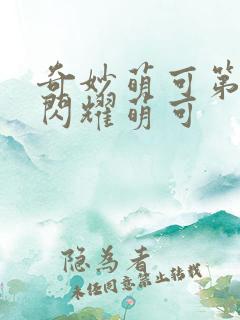 奇妙萌可第
閃耀萌可
隐为者
未经同意禁止转载